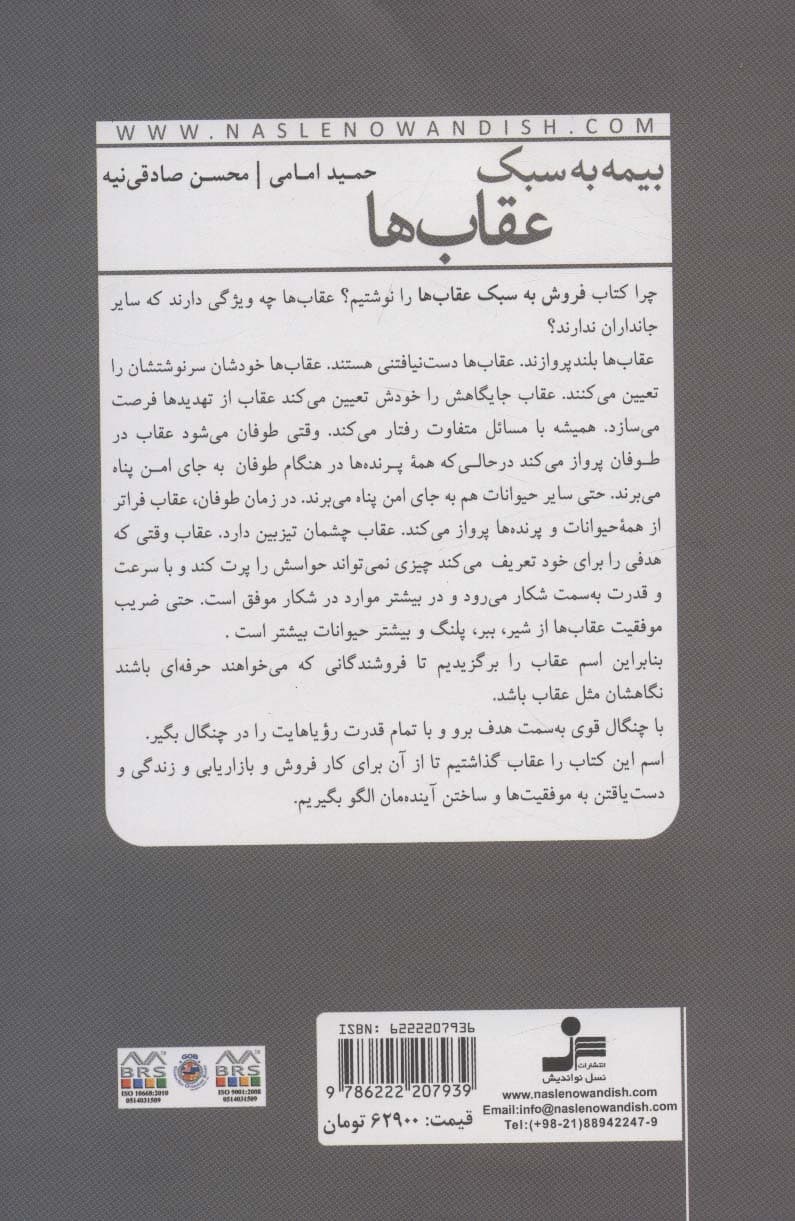 WWW.NASLENOWANDISH.COM
بیمه به سبک
عقاب‌ها
حمید امامی | محسن صادقی‌نیه
چرا کتاب فروش به سبک عقاب‌ها را نوشتیم؟ عقاب‌ها چه ویژگی دارند که سایر
جانداران ندارند؟
عقاب‌ها بلندپروازند. عقاب‌ها دست‌نیافتنی هستند. عقاب‌ها خودشان سرنوشتشان را
تعیین می‌کنند. عقاب جایگاهش را خودش تعیین می‌کند عقاب از تهدیدها فرصت
می‌سازد. همیشه با مسائل متفاوت رفتار می‌کند. وقتی طوفان می‌شود عقاب در
طوفان پرواز می‌کند درحالی‌که همهٔ پرنده‌ها در هنگام طوفان به جای امن پناه
می‌برند. حتی سایر حیوانات هم به جای امن پناه می‌برند. در زمان طوفان، عقاب فراتر
از همهٔ حیوانات و پرنده‌ها پرواز می‌کند. عقاب چشمان تیزبین دارد. عقاب وقتی که
هدفی را برای خود تعریف می‌کند چیزی نمی‌تواند حواسش را پرت کند و با سرعت
و قدرت به‌سمت شکار می‌رود و در بیشتر موارد در شکار موفق است. حتی ضریب
موفقیت عقاب‌ها از شیر، ببر، پلنگ و بیشتر حیوانات بیشتر است .
بنابراین اسم عقاب را برگزیدیم تا فروشندگانی که می‌خواهند حرفه‌ای باشند
نگاهشان مثل عقاب باشد.
با چنگال قوی به‌سمت هدف برو و با تمام قدرت رؤیاهایت را در چنگال بگیر.
اسم این کتاب را عقاب گذاشتیم تا از آن برای کار فروش و بازاریابی و زندگی و
دست‌یاقتن به موفقیت‌ها و ساختن آینده‌مان الگو بگیریم.
ISBN: 6222207936
9 786222 207939
قیمت: ۶۲۹۰۰ تومان
انتشارات
نسل نواندیش
www.naslenowandish.com
Email:info@naslenowandish.com
Tel:(+98-21)88942247-9
BRS
ISO 10668:2010
0514031509
GOB
BRS
ISO 9001:2008
0514031509